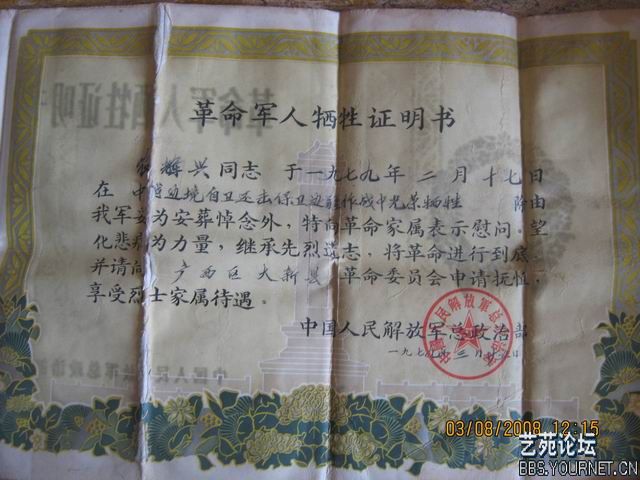 革命军人牺牲证明书
辉兴同志 于一九七九年二月十七日
在 中越边境自卫还击保卫边疆作战中光荣牺牲 除由
我军妥为安葬悼念外，特向革命家属表示慰问。望
化悲痛为力量，继承先烈遗志，将革命进行到底。
并请向 广西区大新县 革命委员会申请抚恤，
享受烈士家属待遇。
中国人民解放军总政治部
一九七九年三月
03/08/2008 12:15
艺苑论坛
BBS.YOURNET.CN